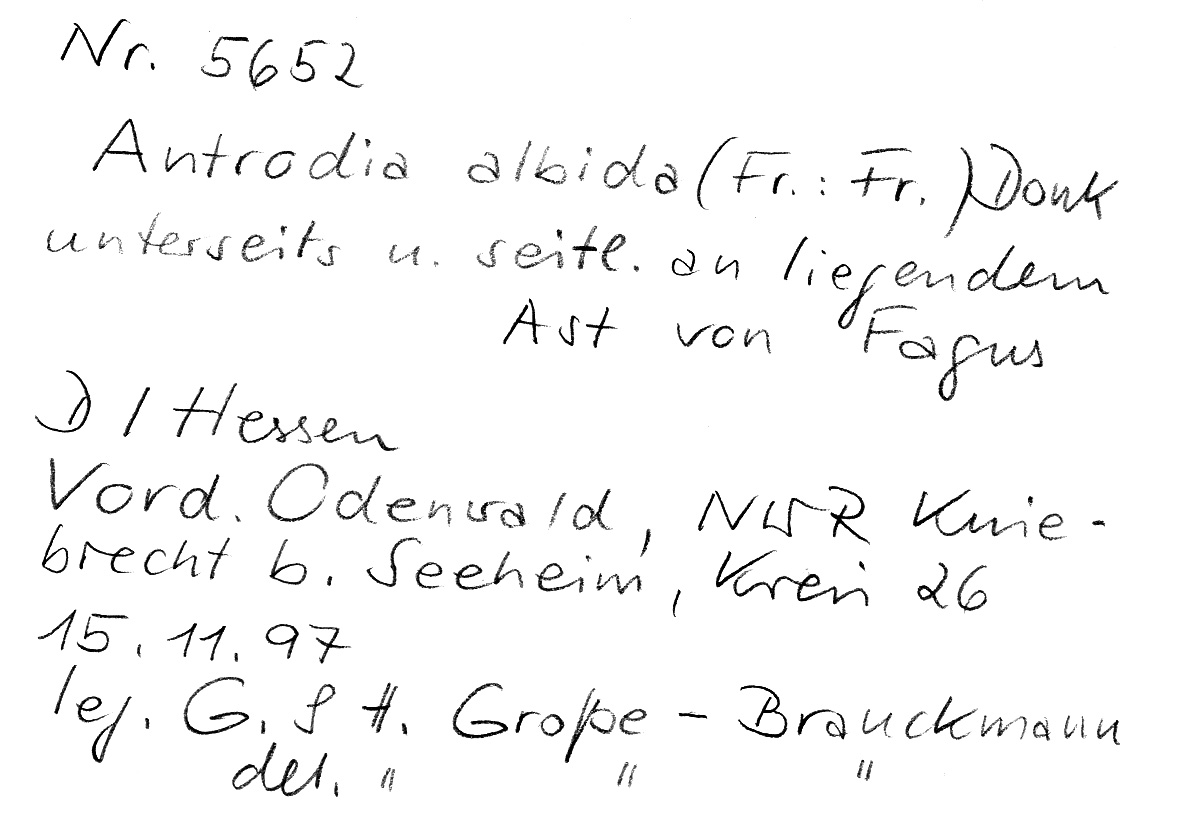 Nr. 5652
Antrodia albida (Fr.: Fr.) Donk
unterseits u. seitl. an liegendem
Ast von Fagus
D / Hessen
Vord. Odenwald, NWR Knie-
brecht b. Seeheim, Kreis 26
15.11.97
leg. G. & H. Große-Brauckmann
det. " " "